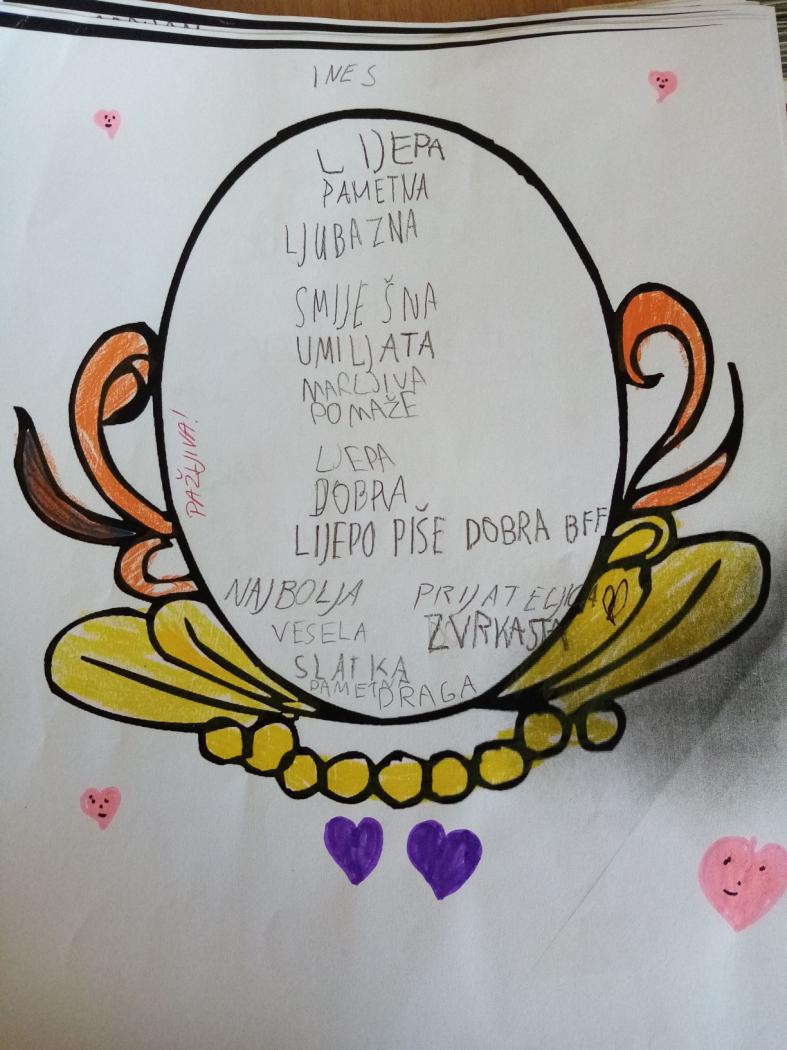 INES
LIJEPA
PAMETNA
LJUBAZNA
SMIJEŠNA
UMILJATA
MARLJIVA
POMAŽE
PAŽLJIVA!
LJEPA
DOBRA
LIJEPO PIŠE DOBRA BFF
NAJBOLJA PRIJATELJICA
VESELA ZVRKASTA
SLATKA
PAMETNA DRAGA